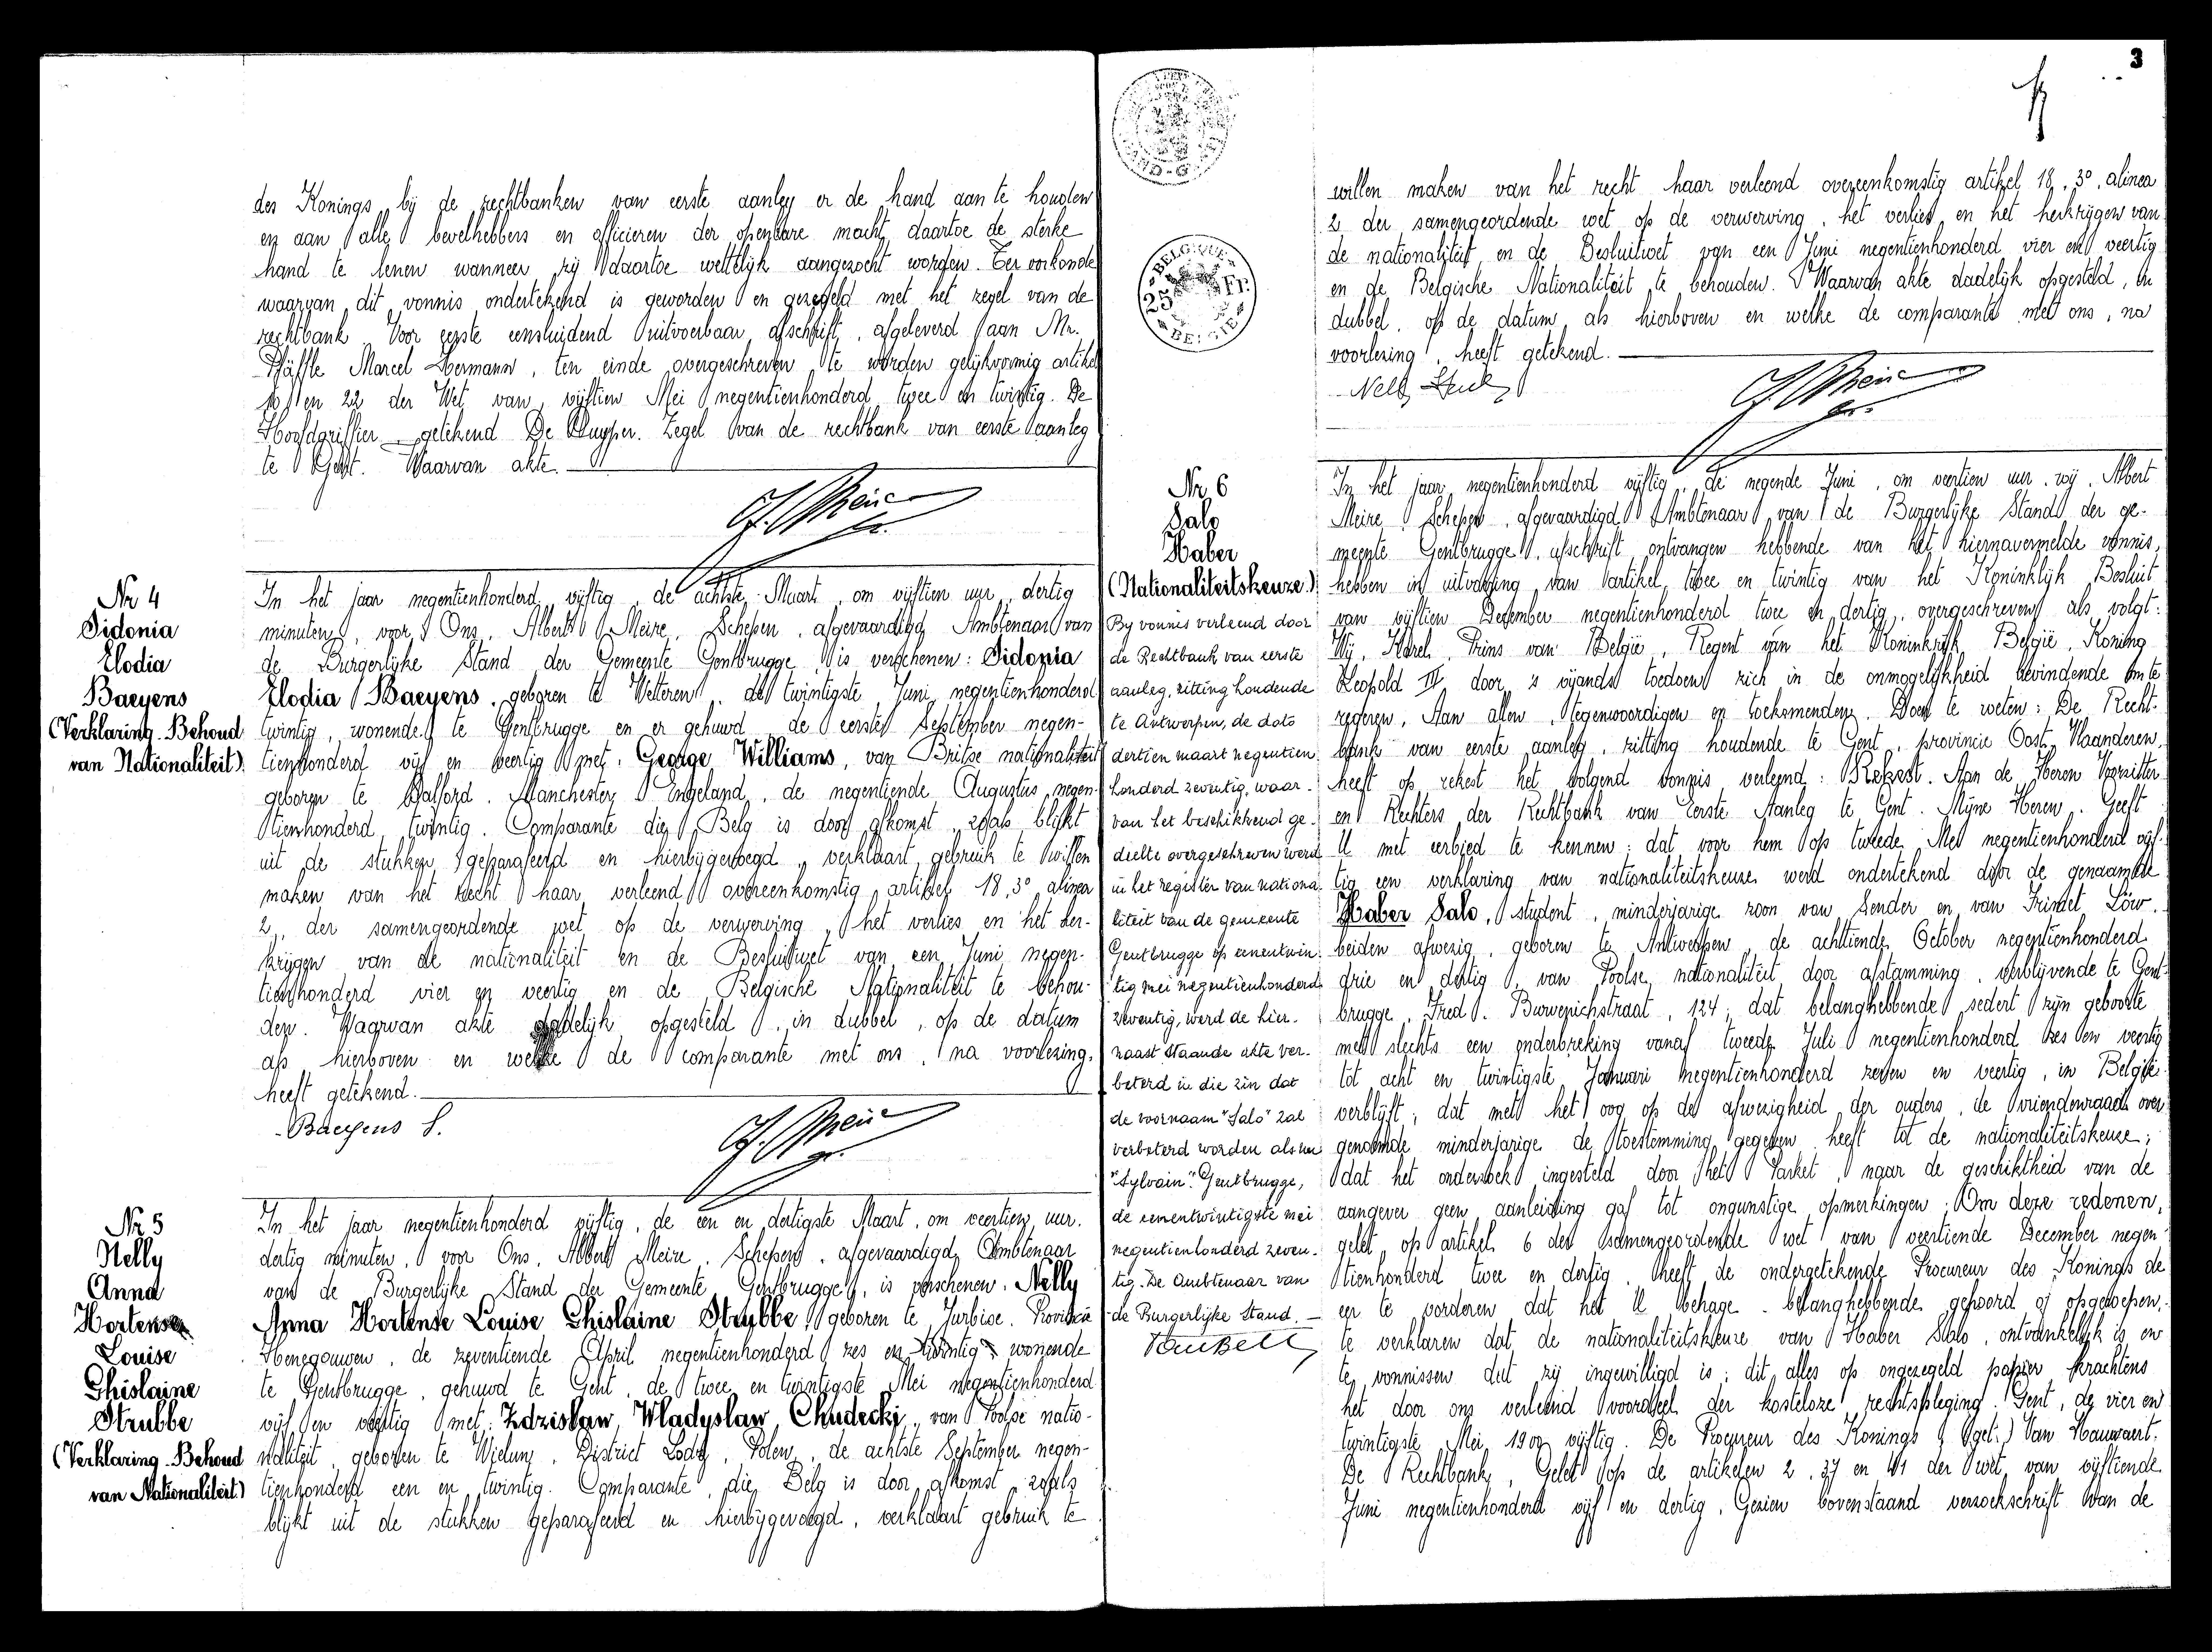 des Konings bij de rechtbanken van eerste aanleg er de hand aan te houden
en aan alle bevelhebbers en officieren der openbare macht daartoe de sterke
hand te lenen wanneer zij daartoe wettelijk aangezocht worden. Ter oorkonde
waarvan dit vonnis ondertekend is geworden en gezegeld met het zegel van de
rechtbank. Voor eerste eensluidend uitvoerbaar afschrift, afgeleverd aan Mr.
Pfäffle Marcel Hermann, ten einde overgeschreven te worden gelijkvormig artikel
10 en 22 der Wet van vijftien Mei negentienhonderd twee en twintig. De
Hoofdgriffier, getekend De Kuyper. Zegel van de rechtbank van eerste aanleg
te Gent. Waarvan akte.
Nr 4
Sidonia
Elodia
Baeyens
(Verklaring-Behoud
van Nationaliteit)
In het jaar negentienhonderd vijftig, de achtste Maart, om vijftien uur, dertig
minuten, voor Ons, Albert Meire, Schepen, afgevaardigd Ambtenaar van
de Burgerlijke Stand der Gemeente Gentbrugge is verschenen: Sidonia
Elodia Baeyens, geboren te Wetteren, de twintigste Juni negentienhonderd
twintig, wonende te Gentbrugge en er gehuwd de eerste September negen-
tienhonderd vijf en veertig met, George Williams, van Britse nationaliteit
geboren te Salford. Manchester, Engeland, de negentiende Augustus negen-
tienhonderd twintig. Comparante die Belg is door afkomst, zoals blijkt
uit de stukken geparafeerd en hierbijgevoegd, verklaart gebruik te willen
maken van het recht haar verleend overeenkomstig artikel 18, 3°, alinea
2, der samengeordende wet op de verwerving, het verlies en het her-
krijgen van de nationaliteit en de Besluitwet van een Juni negen-
tienhonderd vier en veertig en de Belgische Nationaliteit te behou-
den. Waarvan akte dadelijk opgesteld, in dubbel, op de datum
als hierboven en welke de comparante met ons, na voorlezing,
heeft getekend.
Baeyens S.
Nr 5
Nelly
Anna
Hortense
Louise
Ghislaine
Strubbe
(Verklaring-Behoud
van Nationaliteit)
In het jaar negentienhonderd vijftig, de een en dertigste Maart, om veertien uur,
dertig minuten, voor Ons, Albert Meire, Schepen, afgevaardigd Ambtenaar
van de Burgerlijke Stand der Gemeente Gentbrugge, is verschenen, Nelly
Anna Hortense Louise Ghislaine Strubbe, geboren te Jurbise, Provincie
Henegouwen, de zeventiende April negentienhonderd zes en twintig, wonende
te Gentbrugge, gehuwd te Gent, de twee en twintigste Mei negentienhonderd
vijf en veertig met: Zdzislaw, Wladyslaw, Chudecki, van Poolse natio-
naliteit, geboren te Wielun, District Lodz, Polen, de achtste September negen-
tienhonderd een en twintig. Comparante, die Belg is door afkomst, zoals
blijkt uit de stukken geparafeerd en hierbijgevoegd, verklaart gebruik te
3
BELGIQUE
25 Fr.
BELGIE
willen maken van het recht haar verleend overeenkomstig artikel 18, 3°, alinea
2 der samengeordende wet op de verwerving, het verlies en het herkrijgen van
de nationaliteit en de Besluitwet van een Juni negentienhonderd vier en veertig
en de Belgische Nationaliteit te behouden. Waarvan akte dadelijk opgesteld, in
dubbel, op de datum als hierboven en welke de comparante met ons, na
voorlezing, heeft getekend.
Nr 6
Salo
Haber
(Nationaliteitskeuze)
By vonnis verleend door
de Rechtbank van eerste
aanleg, zitting houdende
te Antwerpen, de dato
dertien maart negentien
honderd zeventig, waar-
van het beschikkend ge-
deelte overgeschreven werd
in het register van nationa-
liteit van de gemeente
Gentbrugge op eenentwin-
tig mei negentienhonderd
zeventig, werd de hier-
naast staande akte ver-
beterd in die zin dat
de voornaam "Salo" zal
verbeterd worden als in
"Sylvain". Gentbrugge,
de eenentwintigste mei
negentienhonderd zeven-
tig. De Ambtenaar van
de Burgerlijke Stand.
In het jaar negentienhonderd vijftig, de negende Juni, om veertien uur, wij, Albert
Meire, Schepen, afgevaardigd Ambtenaar van de Burgerlijke Stand der ge-
meente Gentbrugge, afschrift ontvangen hebbende van het hiernavermelde vonnis,
hebben in uitvoering van artikel twee en twintig van het Koninklijk Besluit
van vijftien December negentienhonderd twee en dertig, overgeschreven als volgt:
Wij, Karel, Prins van België, Regent van het Koninkrijk België, Koning
Leopold III door 's vijands toedoen zich in de onmogelijkheid bevindende om te
regeren, Aan allen, tegenwoordigen en toekomenden. Doen te weten: De Recht-
bank van eerste aanleg, zitting houdende te Gent, provincie Oost-Vlaanderen,
heeft op rekest het volgend vonnis verleend: Rekest. Aan de Heren Voorzitter
en Rechters der Rechtbank van Eerste Aanleg te Gent. Mijne Heren. Geeft
U met eerbied te kennen: dat voor hem op tweede Mei negentienhonderd vijf-
tig een verklaring van nationaliteitskeuze werd ondertekend door de genaamde
Haber Salo, student, minderjarige zoon van Sender en van Frimet Löw,
beiden afwezig, geboren te Antwerpen, de achttiende October negentienhonderd
drie en dertig, van Poolse nationaliteit door afstamming, verblijvende te Gent-
brugge, Fred. Burvenichstraat, 124; dat belanghebbende sedert zijn geboorte
met slechts een onderbreking vanaf tweede Juli negentienhonderd zes en veertig
tot acht en twintigste Januari negentienhonderd zeven en veertig, in België
verblijft; dat met het oog op de afwezigheid der ouders, de vriendenraad over
genoemde minderjarige de toestemming gegeven heeft tot de nationaliteitskeuze;
dat het onderzoek ingesteld door het Parket, naar de geschiktheid van de
aangever geen aanleiding gaf tot ongunstige opmerkingen; Om deze redenen,
gelet op artikel 6 der samengeordende wet van veertiende December negen-
tienhonderd twee en dertig, heeft de ondergetekende Procureur des Konings de
eer te vorderen dat het U behage - belanghebbende gehoord of opgeroepen -
te verklaren dat de nationaliteitskeuze van Haber Salo, ontvankelijk is en
te vonnissen dat zij ingewilligd is; dit alles op ongezegeld papier krachtens
het door ons verleend voordeel der kosteloze rechtspleging. Gent, de vier en
twintigste Mei 1900 vijftig. De Procureur des Konings (get.) Van Hauwaert.
De Rechtbank, Gelet op de artikelen 2, 37 en 41 der wet van vijftiende
Juni negentienhonderd vijf en dertig, Gezien bovenstaand verzoekschrift van de